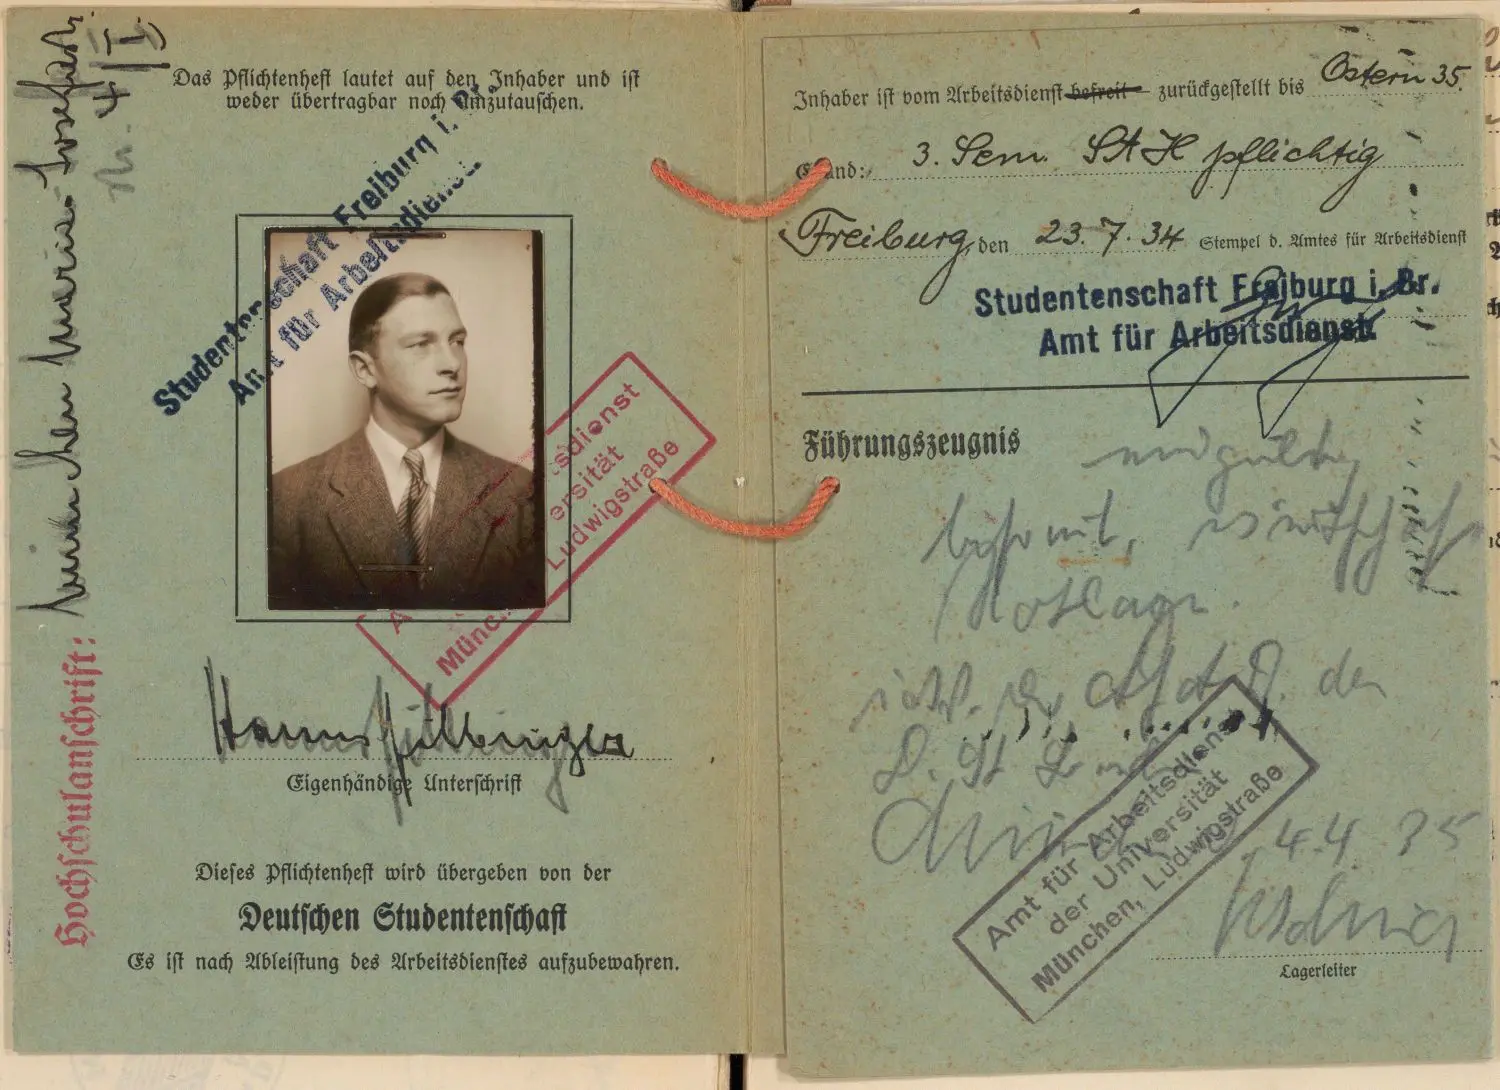 Das Pflichtenheft lautet auf den Inhaber und ist
weder übertragbar noch umzutauschen.
Studentenschaft Freiburg i. Br.
Amt für Arbeitsdienst.
Arbeitsdienst
Universität
München, Ludwigstraße
Hanns Filbinger
Eigenhändige Unterschrift
Dieses Pflichtenheft wird übergeben von der
Deutschen Studentenschaft
Es ist nach Ableistung des Arbeitsdienstes aufzubewahren.
Hochschulanschrift: München Maria-Josefastr.
Nr. 4/I
Inhaber ist vom Arbeitsdienst befreit zurückgestellt bis Ostern 35.
Grund: 3. Sem. St H pflichtig
Freiburg, den 23. 7. 34 Stempel d. Amtes für Arbeitsdienst
Studentenschaft Freiburg i. Br.
Amt für Arbeitsdienst.
Führungszeugnis endgültig
befreit, wirtschaftl
Notlage.
den
D. St
4.4. 35
Amt für Arbeitsdienst
der Universität
München, Ludwigstraße
Lagerleiter